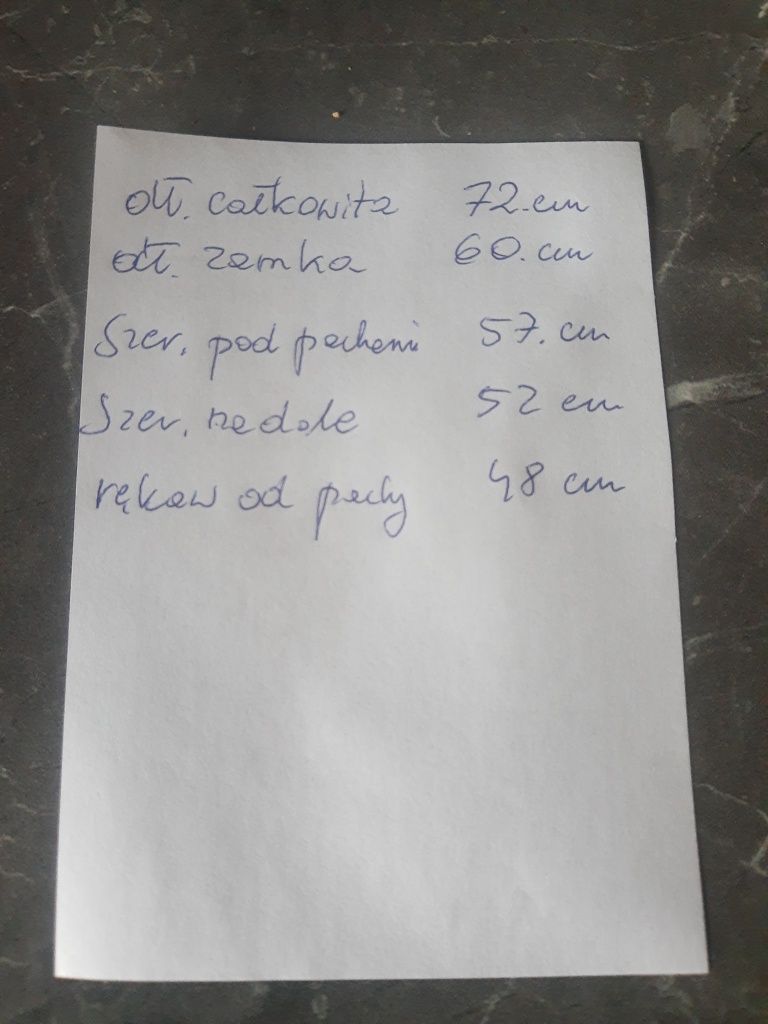 dł. całkowita 72.cm
dł. zamka 60.cm
Szer. pod pachami 57.cm
Szer. na dole 52 cm
rękaw od pachy 48 cm